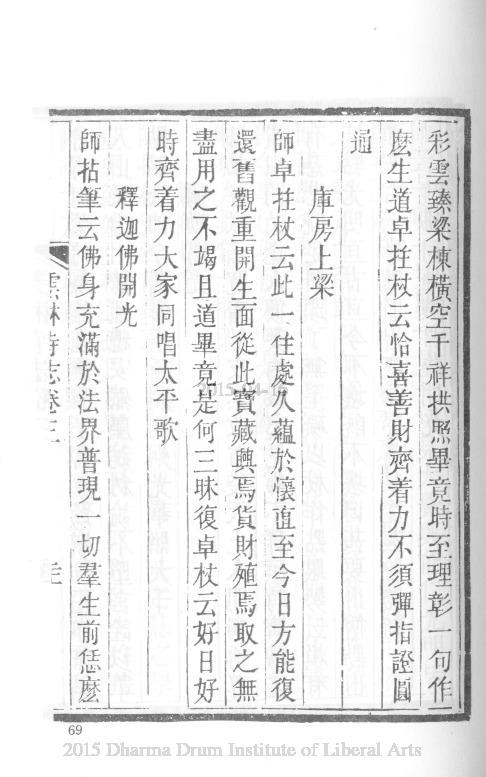 彩雲臻梁棟橫空千祥拱照畢竟時至理彰一句作
麽生道卓拄杖云恰喜善財齊着力不須彈指證圓
通
庫房上梁
師卓拄杖云此一住處久蘊於懷直至今日方能復
還舊觀重開生面從此寶藏興焉貨財殖焉取之無
盡用之不竭且道畢竟是何三昧復卓杖云好日好
時齊着力大家同唱太平歌
釋迦佛開光
師拈筆云佛身充滿於法界普現一切羣生前恁麽
雲林寺志卷三
69
2015 Dharma Drum Institute of Liberal Arts